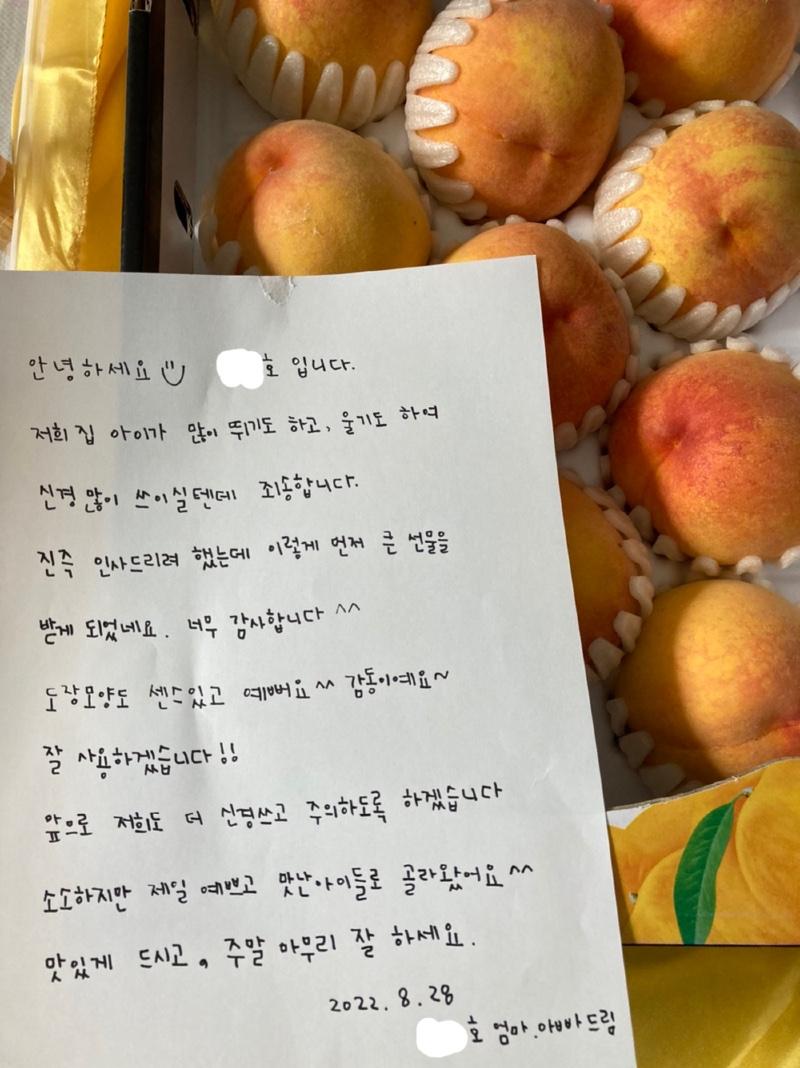 안녕하세요 호 입니다.
저희 집 아이가 많이 뛰기도 하고, 울기도 하여
신경 많이 쓰이실텐데 죄송합니다.
진즉 인사드리려 했는데 이렇게 먼저 큰 선물을
받게 되었네요. 너무 감사합니다 ^^
도장모양도 센스있고 예뻐요^^ 감동이예요~
잘 사용하겠습니다!!
앞으로 저희도 더 신경쓰고 주의하도록 하겠습니다
소소하지만 제일 예쁘고 맛난아이들로 골라왔어요^^
맛있게 드시고, 주말 마무리 잘 하세요.
2022. 8. 28
호 엄마.아빠드림